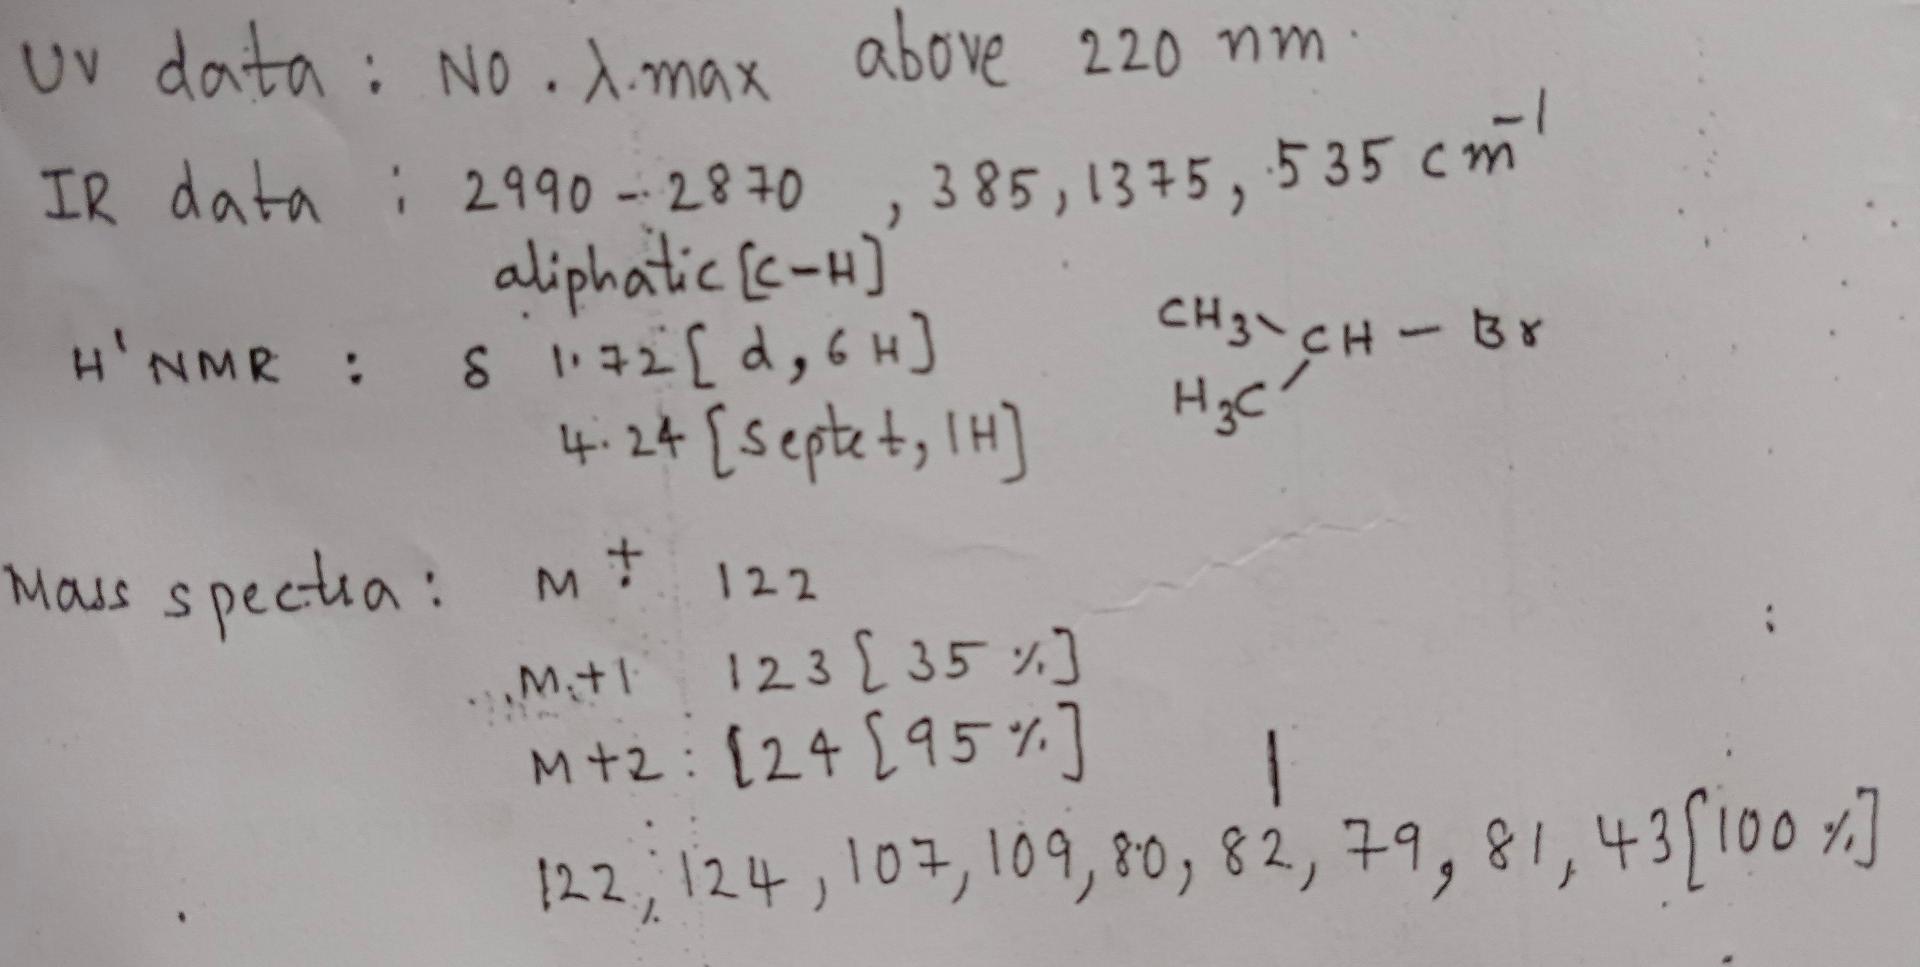 UV data : NO . λ.max above 220 nm.
IR data : 2990 - 2870 , 385, 1375, 535 cm⁻¹
aliphatic [C-H]
H' NMR : δ 1.72 [ d, 6 H]
4.24 [septet, 1H]
CH₃
CH - Br
H₃C
Mass spectra : M⁺· 122
M+1 123 [ 35 %]
M+2 : 124 [95 %]
122, 124, 107, 109, 80, 82, 79, 81, 43 [100 %]